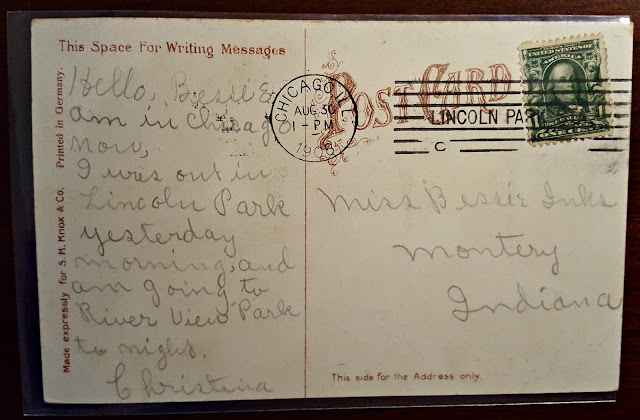 This Space For Writing Messages
Hello, Bessie &
am in Chicago
now,
I was out in
Lincoln Park
yesterday
morning, and
am going to
River View Park
to night.
Christina
Made expressly for S. H. Knox & Co. Printed in Germany.
POST CARD
CHICAGO, ILL.
AUG 30
1-PM
1908
LINCOLN PARK
C
UNITED STATES OF
AMERICA
Miss Bessie Inks
Montery
Indiana
This side for the Address only.